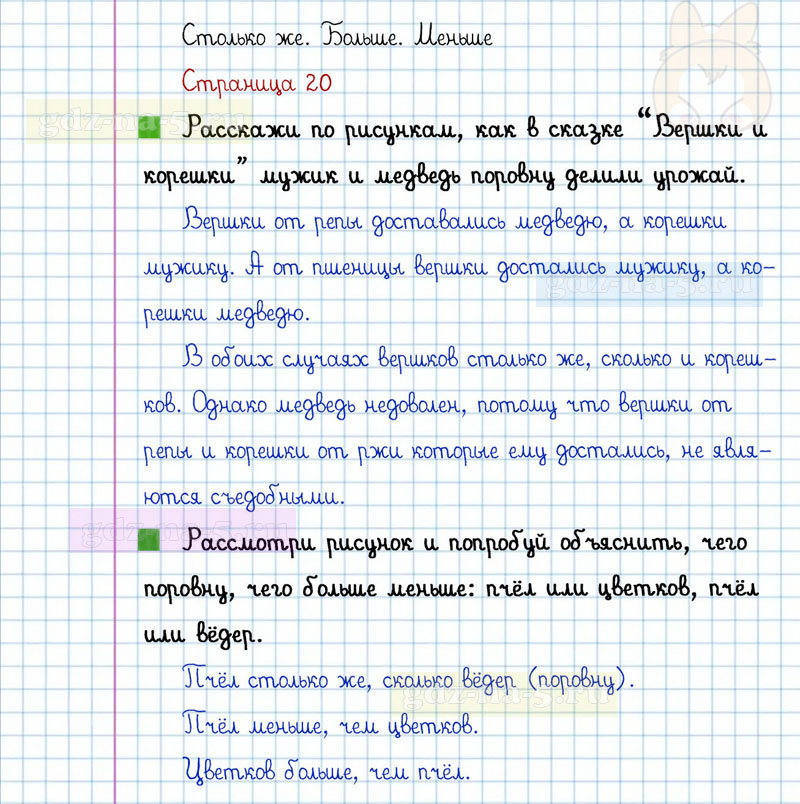 Столько же. Больше. Меньше
Страница 20
gdz-na-5.ru
Расскажи по рисункам, как в сказке “Вершки и
корешки” мужик и медведь поровну делили урожай.
Вершки от репы доставались медведю, а корешки
мужику. А от пшеницы вершки достались мужику, а ко-
gdz-na-5.ru
решки медведю.
В обоих случаях вершков столько же, сколько и кореш-
ков. Однако медведь недоволен, потому что вершки от
репы и корешки от ржи которые ему достались, не явля-
ются съедобными.
gdz-na-5.ru
Рассмотри рисунок и попробуй объяснить, чего
поровну, чего больше меньше: пчёл или цветков, пчёл
или вёдер.
Пчёл столько же, сколько вёдер (поровну).
gdz-na-5.ru
Пчёл меньше, чем цветков.
Цветков больше, чем пчёл.